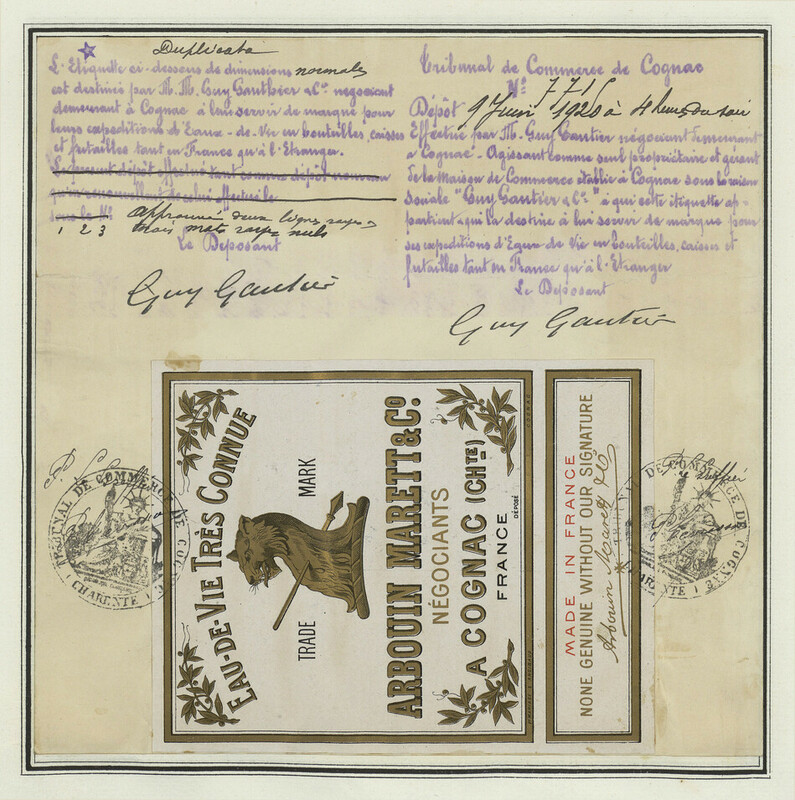 Duplicata
L'Etiquette ci-dessous de dimensions normales
est destinée par M.M. Guy Gauthier & Cº négociant
demeurant à Cognac à lui servir de marque pour
leurs expeditions d'Eaux-de-Vie en bouteilles, caisses
et futailles tant en France qu'à l'Etranger.
Le présent dépôt effectué tant comme dépôt nouveau
qu'en renouvellement de celui effectué le
sous le Nº
approuvé deux lignes rayées
1 2 3 trois mots rayés nuls
Le Deposant
Guy Gautier
Tribunal de Commerce de Cognac
Nº 7715
Dépôt 9 Juin 1920 à 4 heures du soir
Effectué par M. Guy Gautier négociant demeurant
à Cognac - Agissant comme seul propriétaire et gérant
de la Maison de Commerce établie à Cognac sous la raison
sociale "Guy Gautier & Cº" à qui cette étiquette ap-
partient qui la destine à lui servir de marque pour
ses expeditions d'Eaux de Vie en bouteilles, caisses et
futailles tant en France qu'à l'Etranger
Le Deposant
Guy Gautier
EAU-DE-VIE TRÈS CONNUE
TRADE MARK
ARBOUIN MARETT & Cº
NÉGOCIANTS
A COGNAC (CHTE)
FRANCE
DÉPOSÉ
MADE IN FRANCE
NONE GENUINE WITHOUT OUR SIGNATURE
Arbouin Marett & Cº
TRIBUNAL DE COMMERCE DE COGNAC
CHARENTE
DE COMMERCE DE COGNAC
CHARENTE